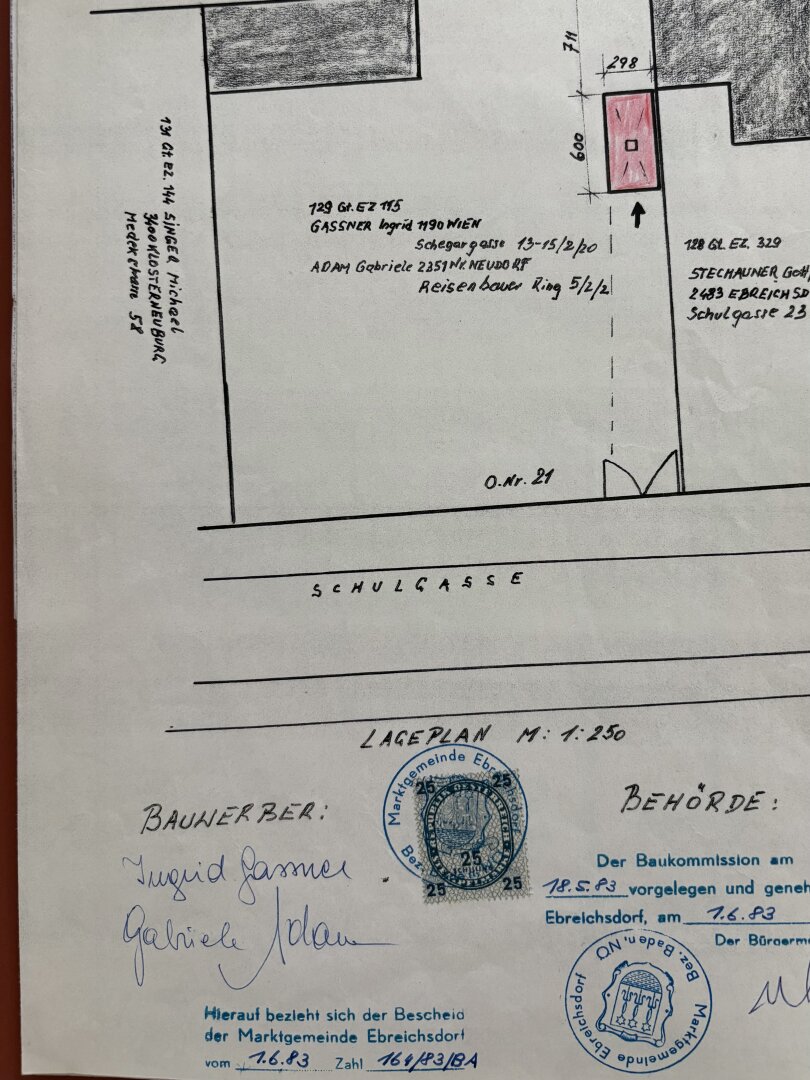 711
298
600
131 Gt. EZ. 144 SINGER Michael
3400 KLOSTERNEUBURG
129 Gt. EZ 115
GASSNER Ingrid 1190 WIEN
Schegargasse 13-15/2/20
ADAM Gabriele 2351 Nr. NEUDORF
Reisenbauer Ring 5/2/2
128 Gt. EZ. 329
STECHAUNER
2483 EBREICHSD
Schulgasse 23
O.Nr. 21
SCHULGASSE
LAGEPLAN M: 1:250
BAUWERBER:
BEHÖRDE:
Marktgemeinde Ebreichsdorf
Bez.
25 25
25
25 25
Ingrid Gassner
Gabriele Adam
Der Baukommission am
18.5.83 vorgelegen und geneh
Ebreichsdorf, am 1.6.83
Der Bürgerme
Marktgemeinde Ebreichsdorf
Bez. Baden, NÖ
Hierauf bezieht sich der Bescheid
der Marktgemeinde Ebreichsdorf
vom 1.6.83 Zahl 164/83/BA